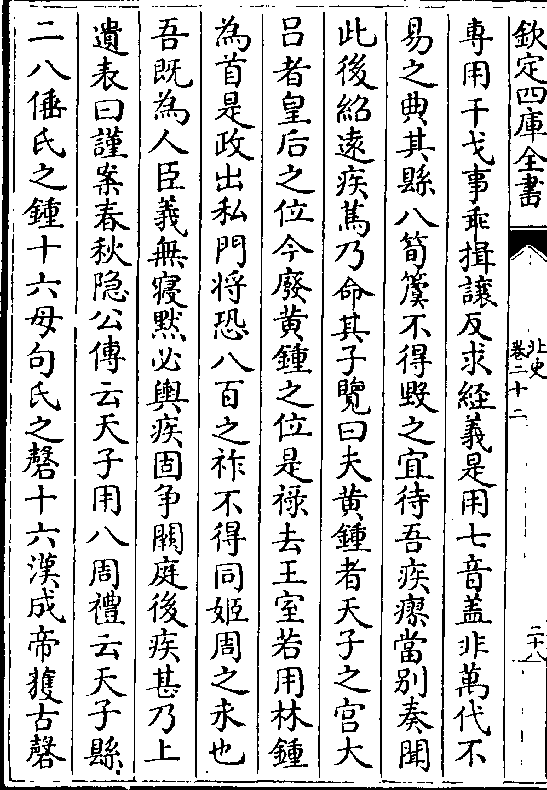 欽定四庫全書
北史
卷二十二
二十八
專用干戈事乖揖讓反求經義是用七音蓋非萬代不
易之典其縣八筍簴不得毀之宜待吾疾瘳當別奏聞
此後紹遠疾篤乃命其子覽曰夫黄鍾者天子之宫大
吕者皇后之位今廢黄鍾之位是禄去王室若用林鍾
為首是政出私門将恐八百之祚不得同姬周之永也
吾既為人臣義無寢默必輿疾固争闕庭後疾甚乃上
遺表曰謹案春秋隐公傳云天子用八周禮云天子縣
二八倕氏之鍾十六母句氏之磬十六漢成帝獲古磬